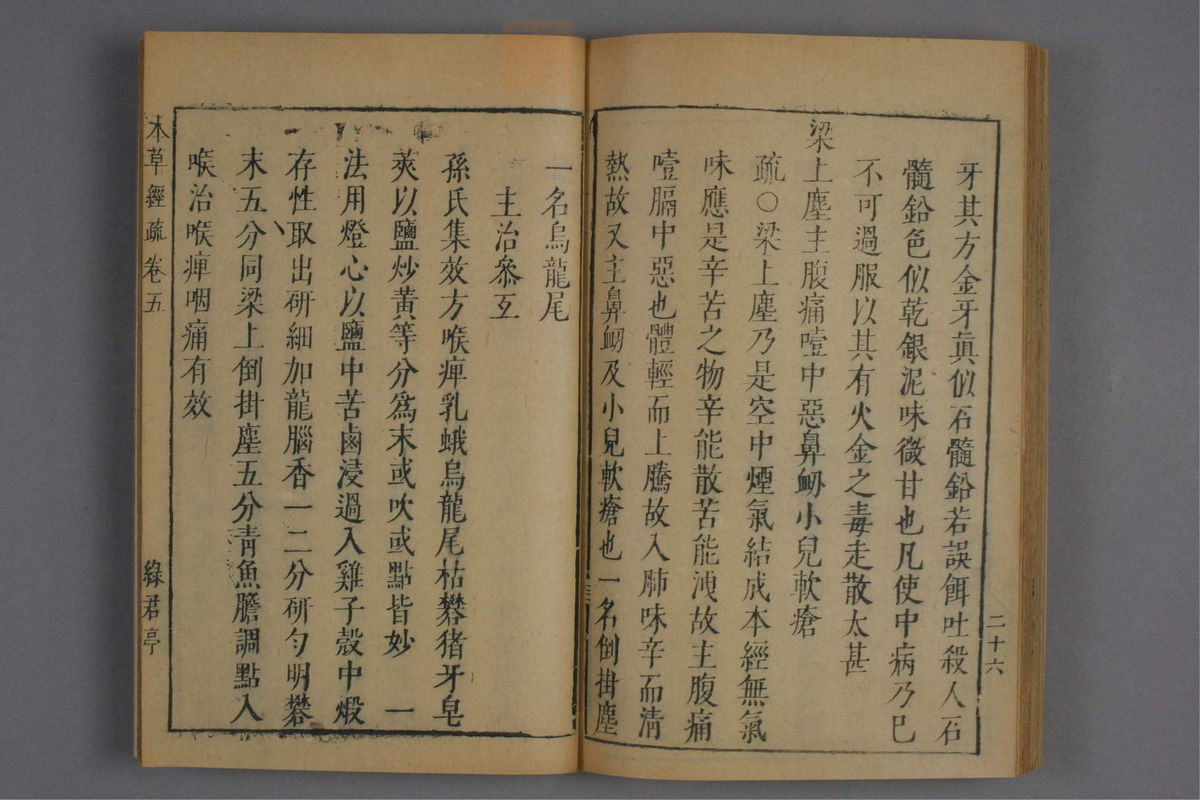 二十六
牙其方金牙眞似石髓鉛若誤餌吐殺人石
髓鉛色似乾銀泥味微甘也凡使中病乃巳
不可過服以其有火金之毒走散太甚
梁上塵主腹痛噎中惡鼻衂小兒軟瘡
疏○梁上塵乃是空中煙氣結成本經無氣
味應是辛苦之物辛能散苦能洩故主腹痛
噎膈中惡也體輕而上騰故入肺味辛而清
熱故又主鼻衂及小兒軟瘡也一名倒掛塵
一名烏龍尾
主治叅互
孫氏集效方喉痺乳蛾烏龍尾枯礬猪牙皂
莢以鹽炒黄等分爲末或吹或點皆妙 一
法用燈心以鹽中苦鹵浸過入雞子殻中煅
存性取出研細加龍腦香一二分研勻明礬
末五分同梁上倒掛塵五分青魚膽調點入
喉治喉痺咽痛有效
本草經疏 卷五 綠君亭